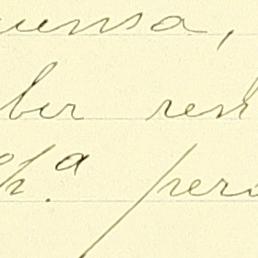 uensa,
ber res
h.ª pero